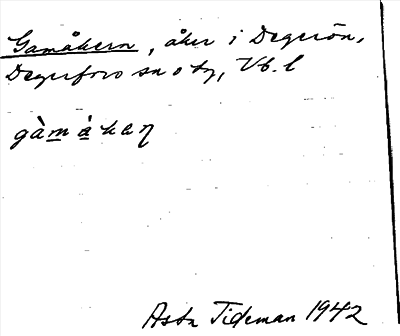 Gamåkern, åker i Degerön,
Degerfors sn o by, Vb. l
gàmàkaṇ
Asta Tideman 1942